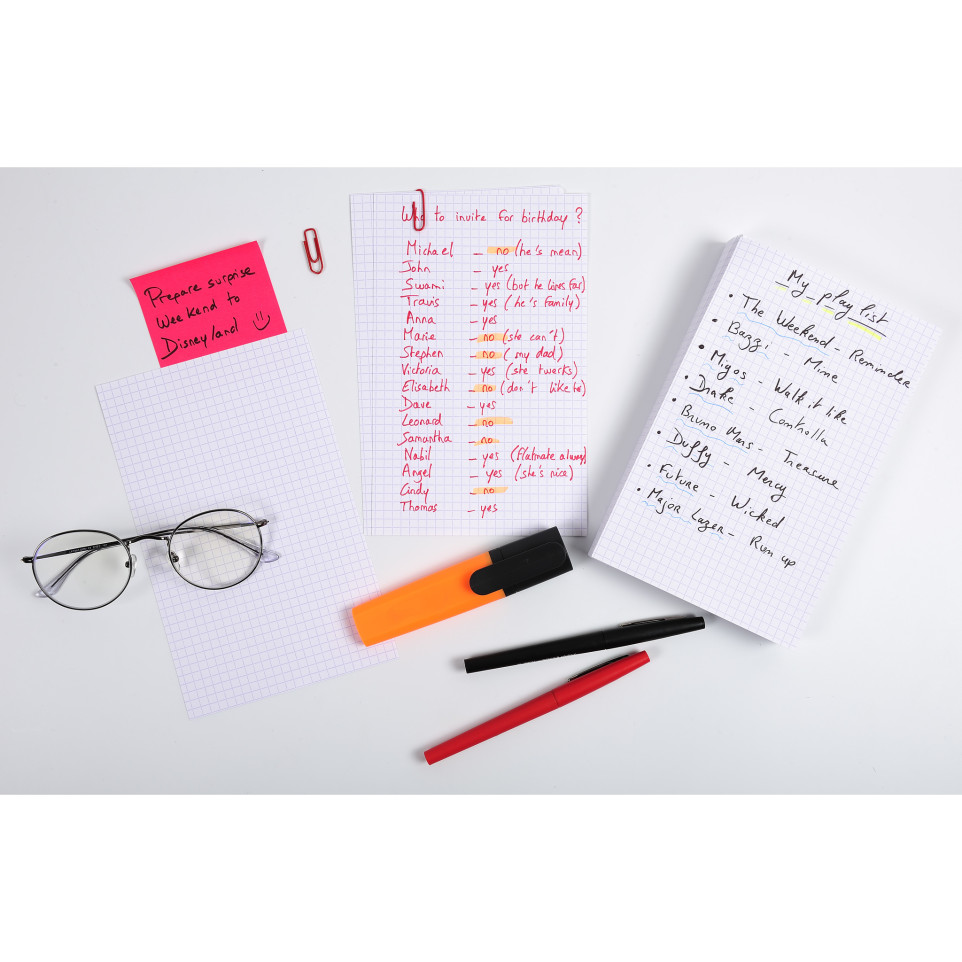 Prepare surprise
Weekend to
Disneyland
Who to invite for birthday ?
Michael – no (he's mean)
John – yes
Swami – yes (but he lives far)
Travis – yes (he's family)
Anna – yes
Marie – no (she can't)
Stephen – no (my dad)
Victoria – yes (she twerks)
Elisabeth – no (don't like her)
Dave – yes
Leonard – no
Samantha – no
Nabil – yes (flatmate always)
Angel – yes (she's nice)
Cindy – no
Thomas – yes
My play list
• The Weekend – Reminder
• Bazzi – Mine
• Migos – Walk it like
• Drake – Controlla
• Bruno Mars – Treasure
• Duffy – Mercy
• Future – Wicked
• Major Lazer – Run up